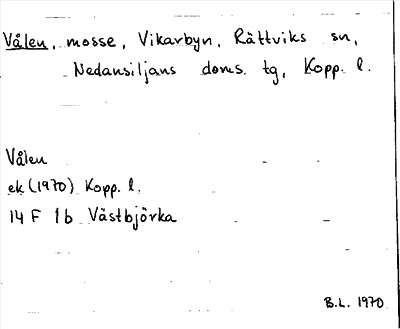 Vålen, mosse, Vikarbyn, Rättviks sn,
Nedansiljans doms. tg, Kopp. l.
Vålen
ek (1970) Kopp. l.
14 F 1b Västbjörka
B.L. 1970